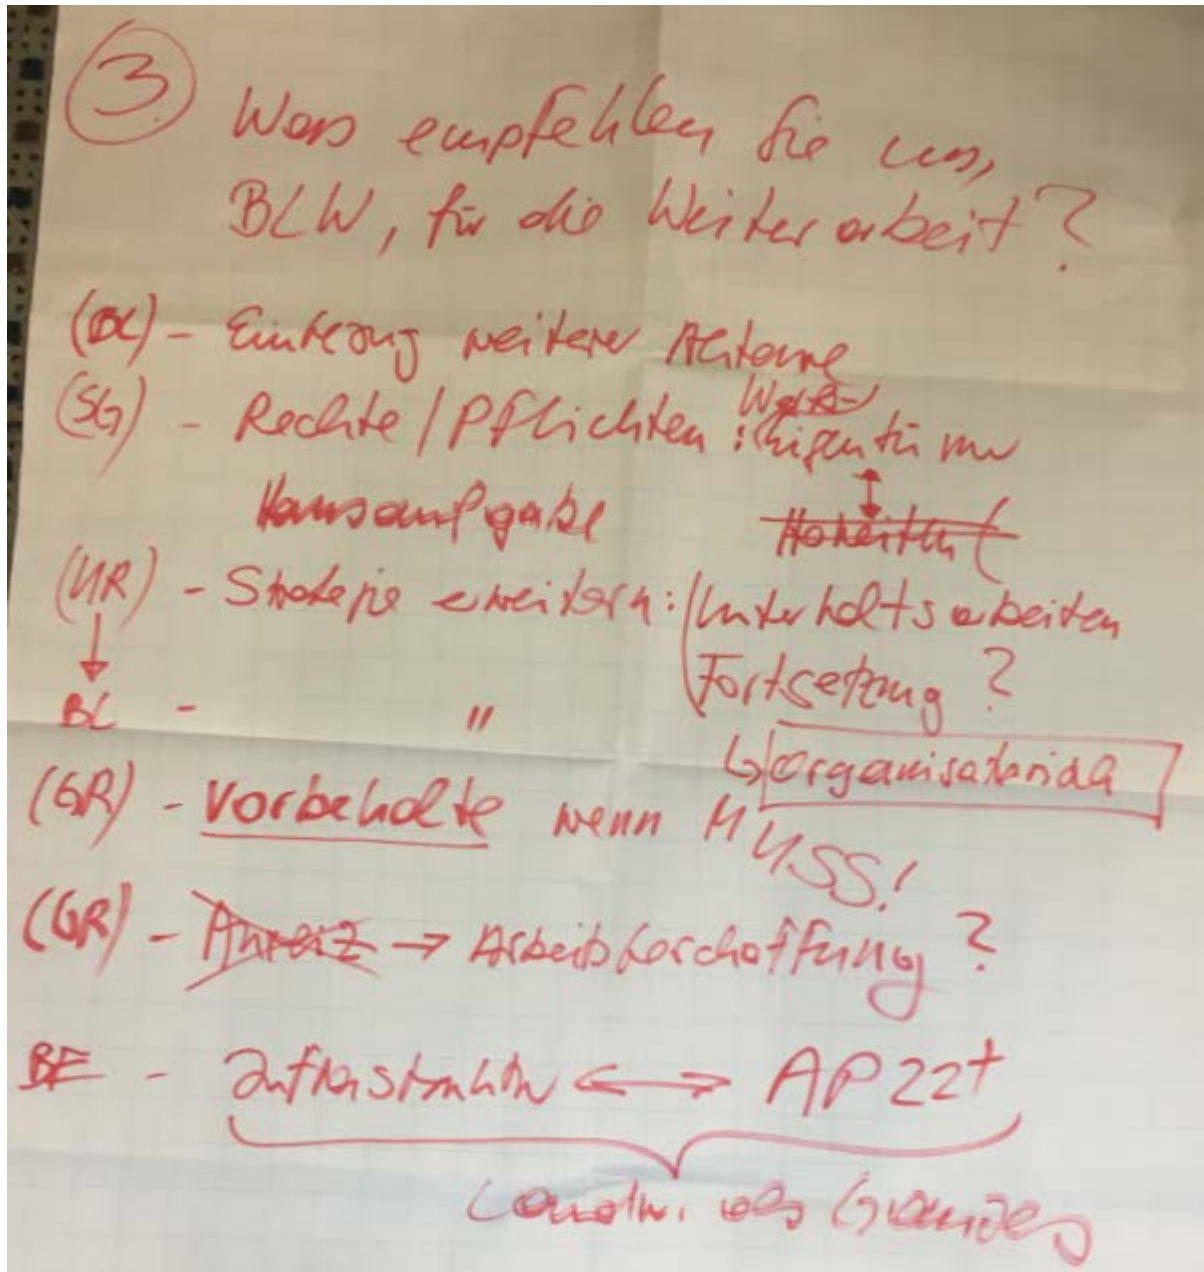 3.
Was empfehlen Sie uns,
BLW, für die Weiterarbeit?
(BL) - Einbezug weiterer Akteure
(SG) - Rechte / Pflichten : Eigentümer
Hausaufgabe
(UR) - Strategie erweitern: Unterhaltsarbeiten
Fortsetzung ?
BL - "
↳ organisatorisch
(GR) - Vorbehalte wenn MUSS!
(GR) - Anreiz → Arbeitsbeschaffung ?
BE - Infrastruktur ↔ AP22+
Landw. als Ganzes